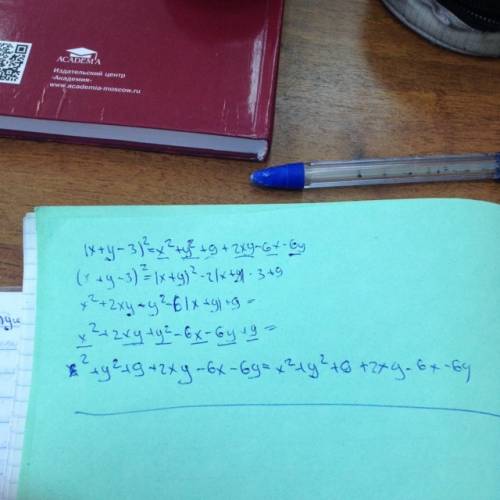 ACADEMA
Издательский центр
«Академия»
www.academia-moscow.ru
(x+y-3)²=x²+y²+9+2xy-6x-6y
(x+y-3)²=(x+y)²-2(x+y)·3+9
x²+2xy+y²-6(x+y)+9=
x²+2xy+y²-6x-6y+9=
x²+y²+9+2xy-6x-6y=x²+y²+9+2xy-6x-6y